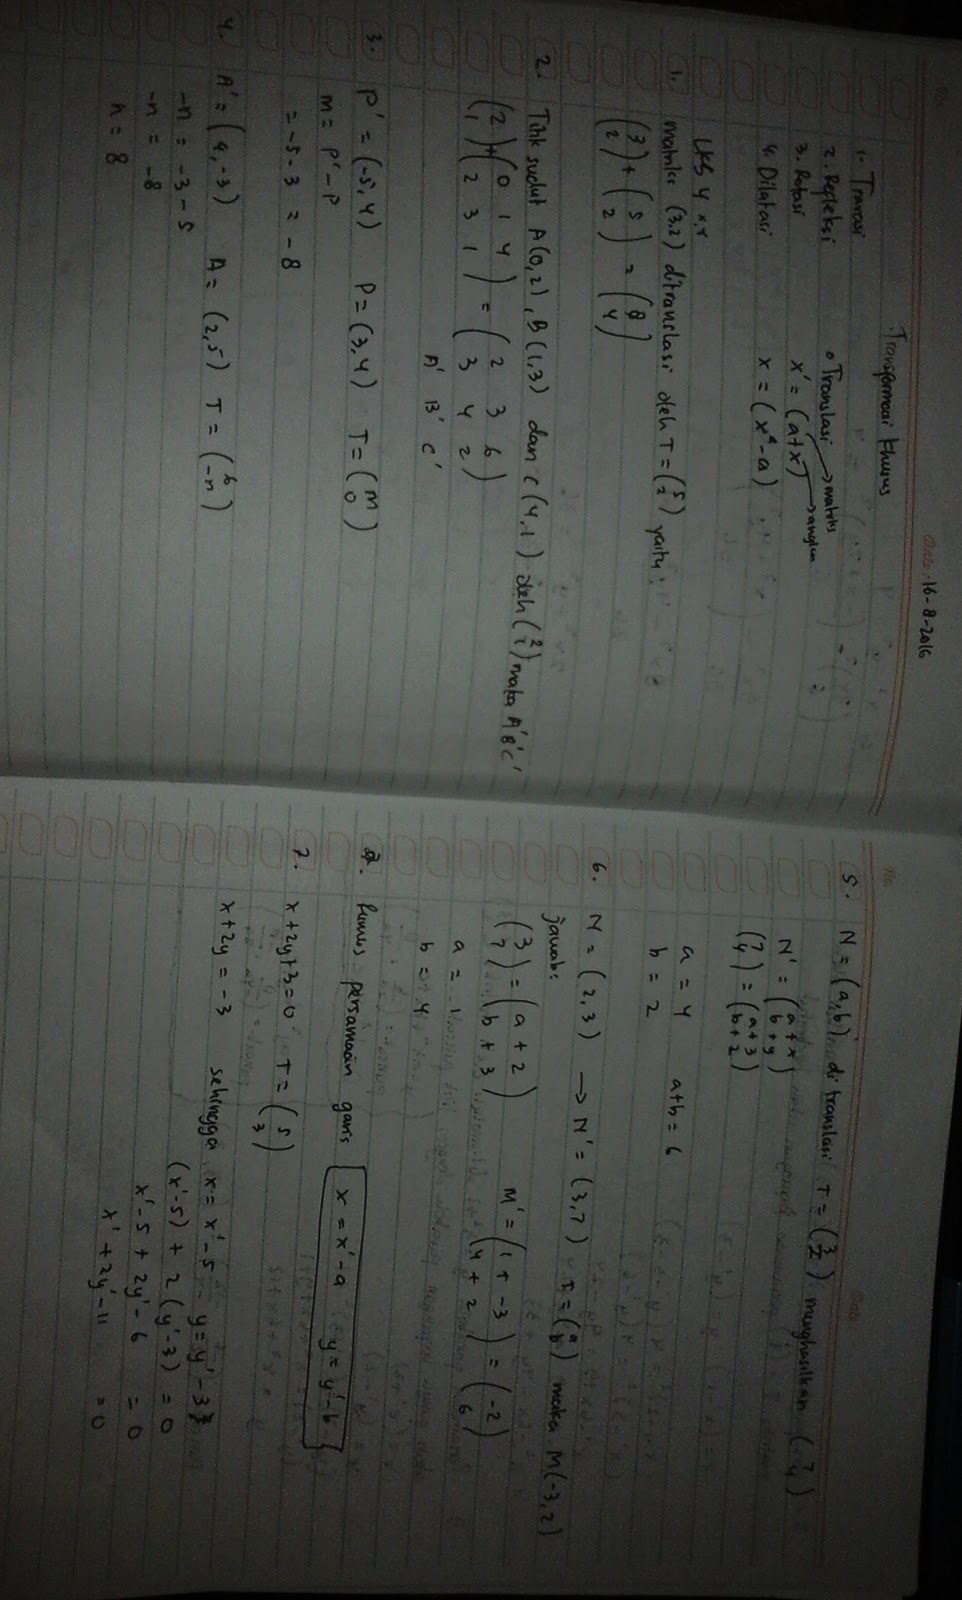 Date: 16-8-2016
Transformasi Khusus
1. Tranasi
2. Refleksi
3. Rotasi
4. Dilatasi
• Translasi → matriks
x' = (a+x) → angka
x = (x' - a)
LKS 4
1. matriks (3,2) ditranslasi oleh T = (5 2) yaitu :
(3 2) + (5 2) = (8 4)
2. Titik sudut A(0,2), B(1,3) dan C(4,1) oleh (2 1) maka A'B'C'
(2 1) + (0 1 4
2 3 1) = (2 3 6
3 4 2)
A' B' C'
3. P' = (-5,4) P = (3,4) T = (m 0)
m = P' - P
= -5 - 3 = -8
4. A' = (4,-3) A = (2,5) T = (6 -n)
-n = -3 - 5
-n = -8
n = 8
No.
Date
5. N = (a,b) di translasi T = (3 2) menghasilkan (7 4)
N' = (a+x
b+y)
(7 4) = (a+3
b+2)
a = 4 a+b = 6
b = 2
6. N = (2,3) → N' = (3,7) T = (a b) maka M(-3,2)
jawab:
(3 7) = (a + 2
b + 3) M' = (1 + -3
4 + 2) = (-2 6)
a = 1
b = 4
Rumus persamaan garis x = x' - a y = y' - b
7. x + 2y + 3 = 0 T = (5 3)
x + 2y = -3 sehingga x = x' - 5 y = y' - 3
(x' - 5) + 2 (y' - 3) = 0
x' - 5 + 2y' - 6 = 0
x' + 2y' - 11 = 0